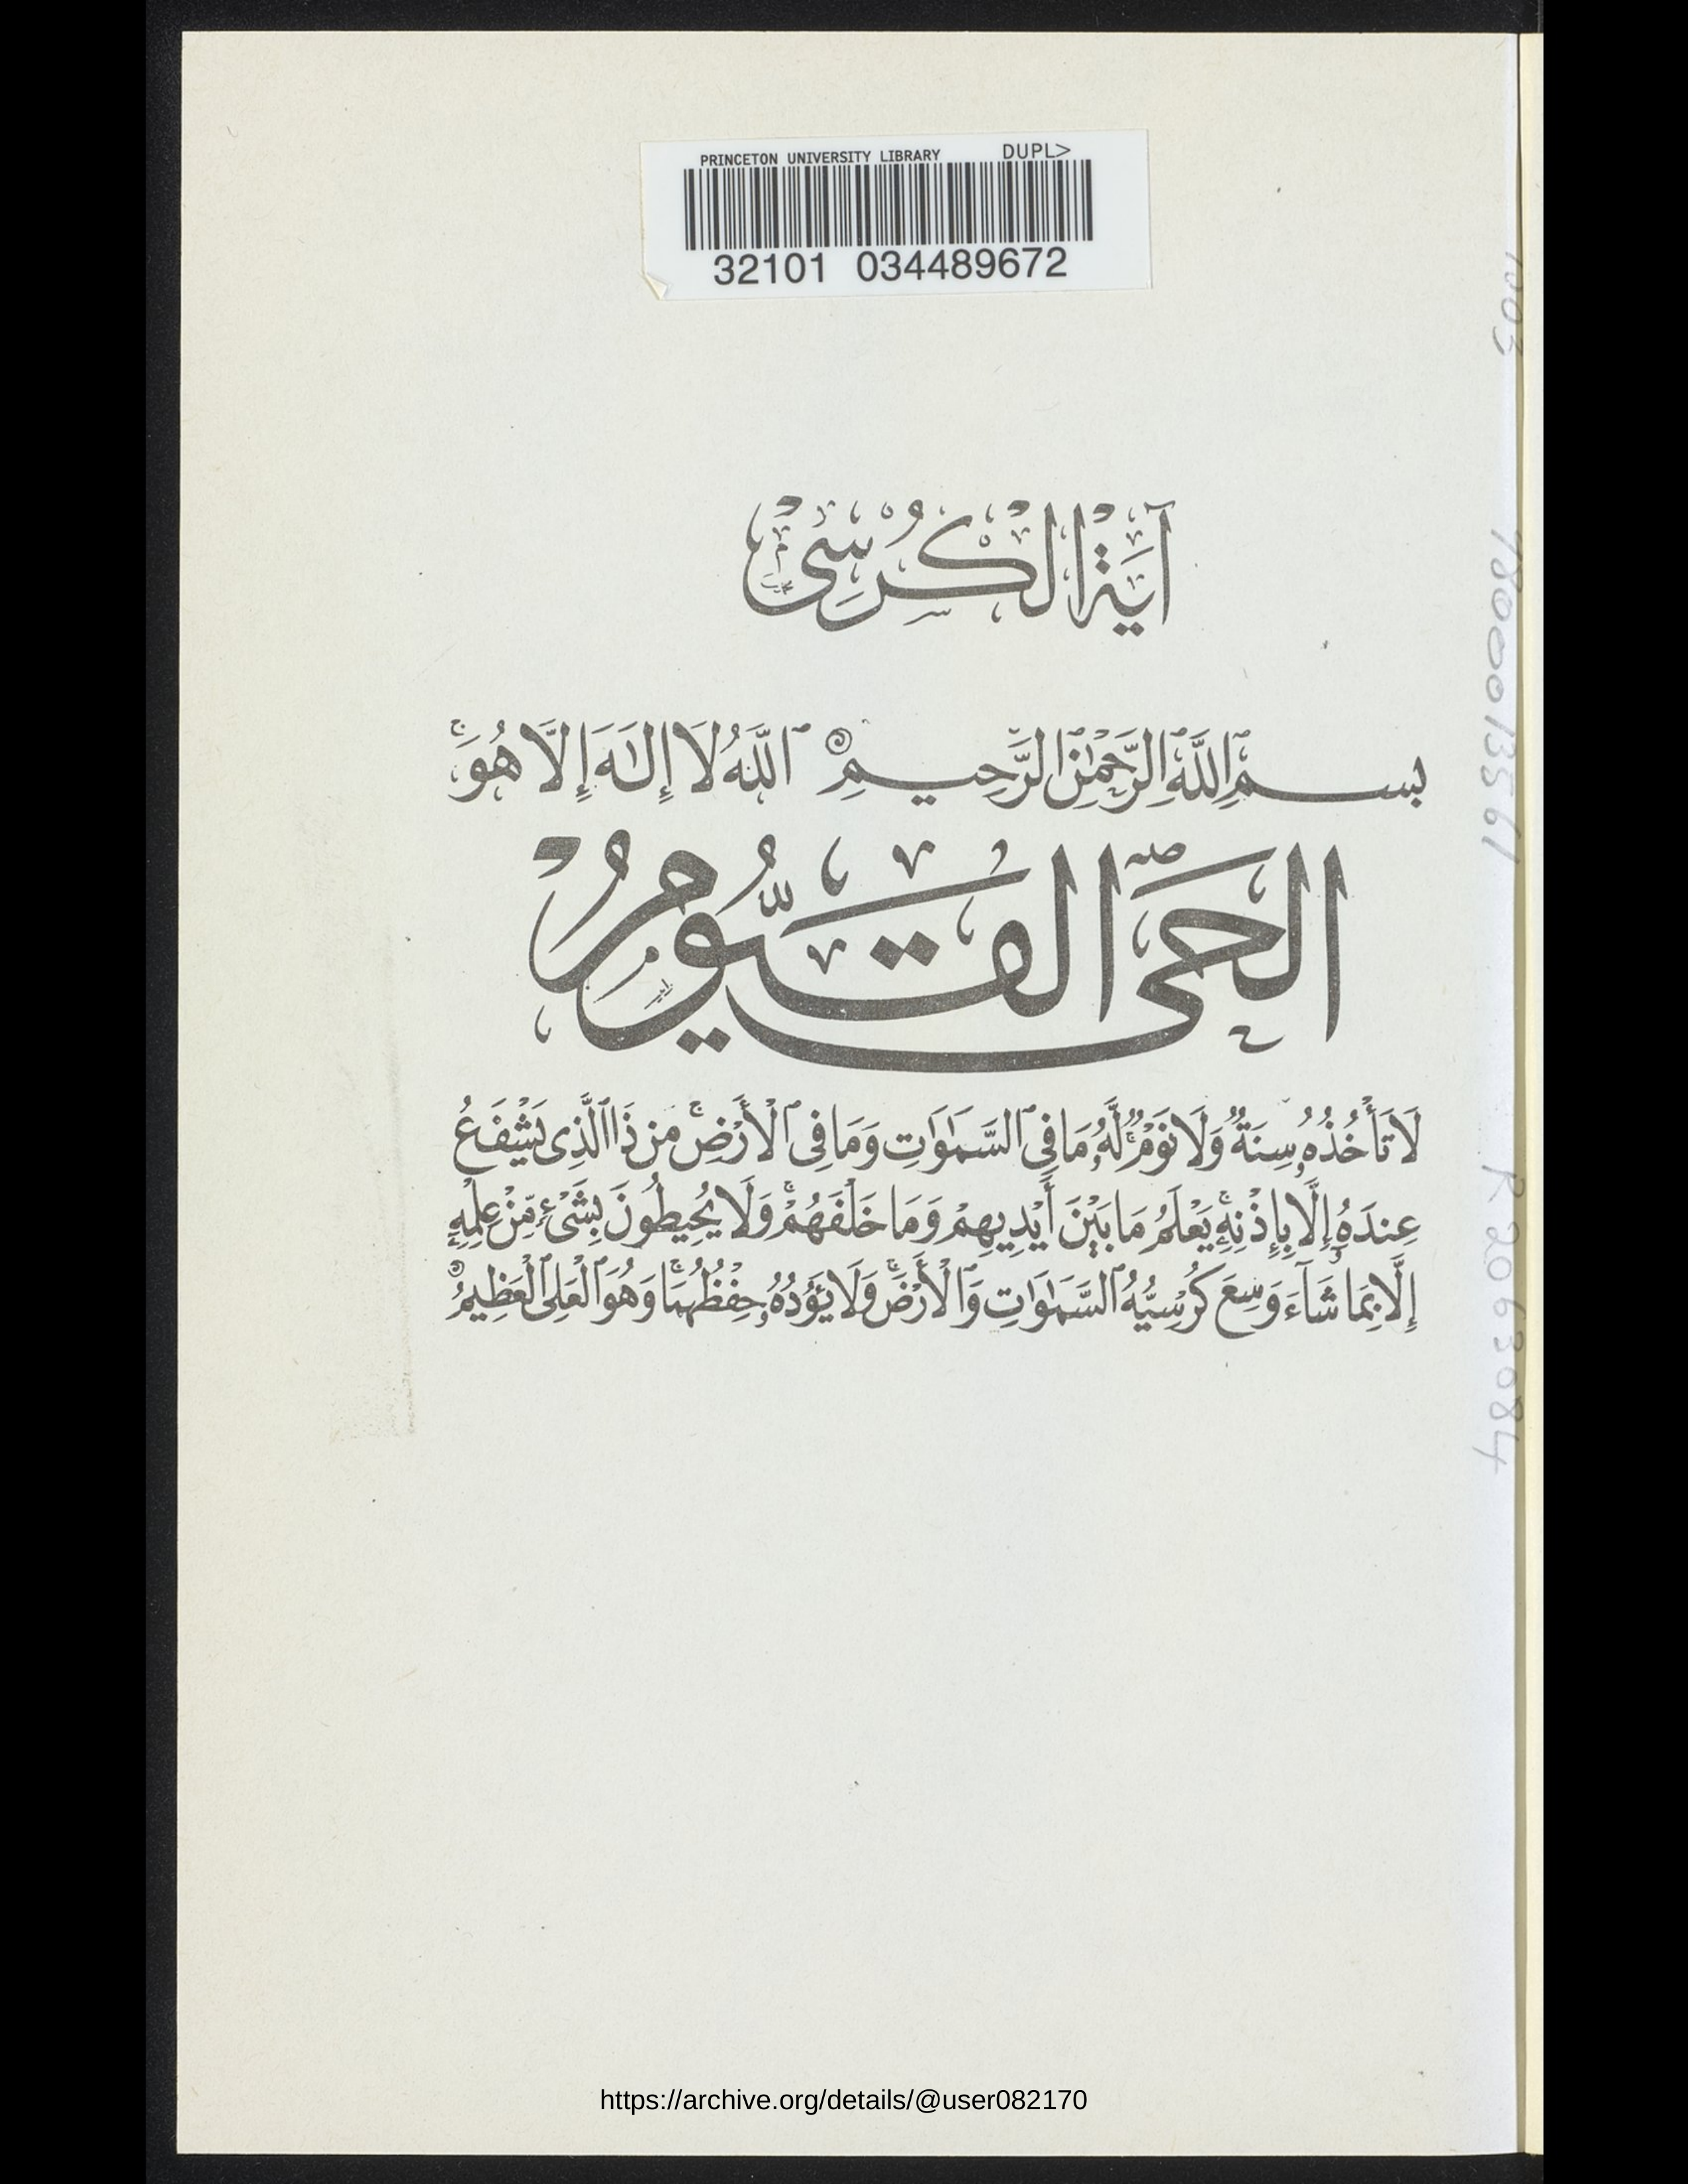 PRINCETON UNIVERSITY LIBRARY DUPL>
32101 034489672
آيَةُ الْكُرْسِيّ
بِسْمِ ٱللَّهِ ٱلرَّحْمَٰنِ ٱلرَّحِيمِ ٱللَّهُ لَا إِلَٰهَ إِلَّا هُوَ ۚ
الحَىُّ القَيُّومُ
لَا تَأْخُذُهُۥ سِنَةٌ وَلَا نَوْمٌ ۚ لَّهُۥ مَا فِى ٱلسَّمَٰوَٰتِ وَمَا فِى ٱلْأَرْضِ ۚ مَن ذَا ٱلَّذِى يَشْفَعُ
عِندَهُۥ إِلَّا بِإِذْنِهِۦ ۚ يَعْلَمُ مَا بَيْنَ أَيْدِيهِمْ وَمَا خَلْفَهُمْ ۚ وَلَا يُحِيطُونَ بِشَىْءٍ مِّنْ عِلْمِهِۦٓ
إِلَّا بِمَا شَآءَ وَسِعَ كُرْسِيُّهُ ٱلسَّمَٰوَٰتِ وَٱلْأَرْضَ ۚ وَلَا يَـُٔودُهُۥ حِفْظُهُمَا ۚ وَهُوَ ٱلْعَلِىُّ ٱلْعَظِيمُ
1800013561
R2063084
https://archive.org/details/@user082170